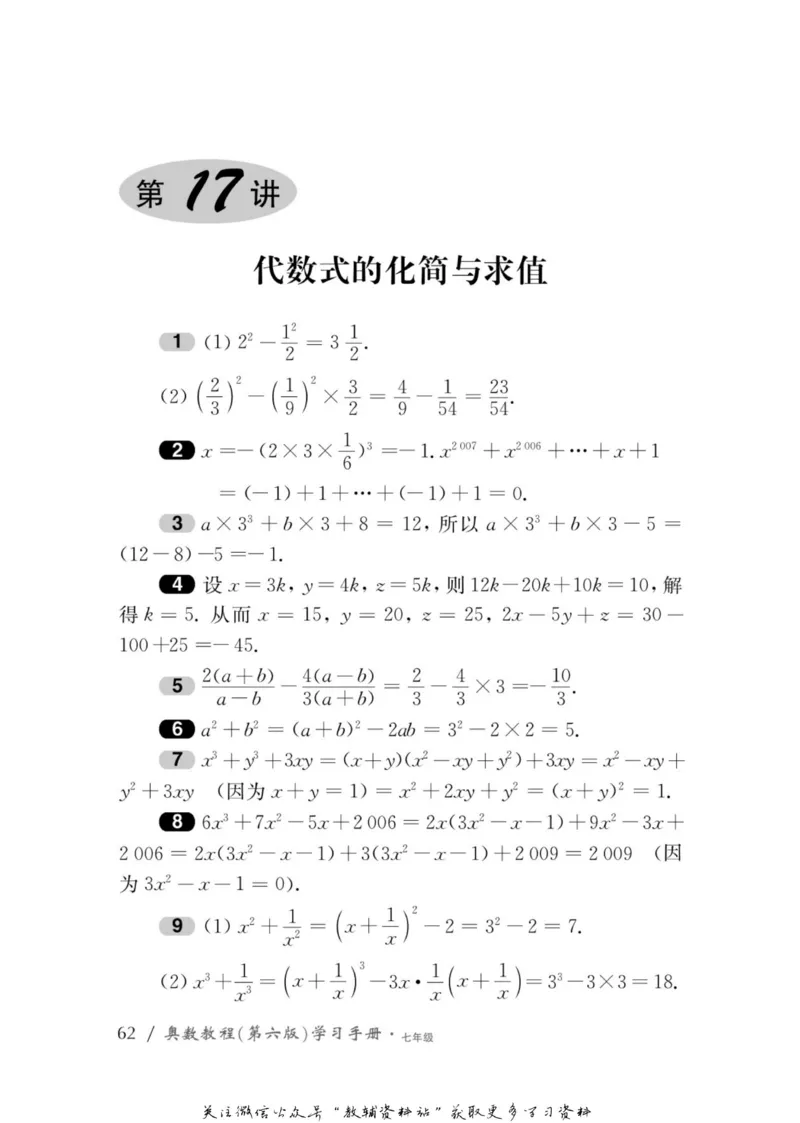 第 17 讲
代数式的化简与求值
1 (1) 2² - 1²/2 = 3 1/2.
(2) (2/3)² - (1/9)² × 3/2 = 4/9 - 1/54 = 23/54.
2 x =-(2×3×1/6)³ =-1. x²⁰⁰⁷ + x²⁰⁰⁶ +…+x+1
= (-1)+1+…+(-1)+1 = 0.
3 a×3³ +b×3+8 = 12, 所以 a×3³ +b×3-5 =
(12-8)-5 =-1.
4 设 x=3k, y=4k, z=5k, 则12k-20k+10k=10, 解
得 k = 5. 从而 x = 15, y = 20, z = 25, 2x-5y+z = 30-
100+25 =-45.
5 2(a+b)/(a-b) - 4(a-b)/3(a+b) = 2/3 - 4/3 ×3 =-10/3.
6 a²+b² = (a+b)²-2ab = 3²-2×2 = 5.
7 x³+y³+3xy = (x+y)(x²-xy+y²)+3xy = x²-xy+
y²+3xy (因为 x+y = 1) = x²+2xy+y² = (x+y)² = 1.
8 6x³+7x²-5x+2 006 = 2x(3x²-x-1)+9x²-3x+
2 006 = 2x(3x²-x-1)+3(3x²-x-1)+2 009 = 2 009 (因
为 3x²-x-1 = 0).
9 (1) x²+1/x² = (x+1/x)²-2 = 3²-2 = 7.
(2) x³+1/x³ = (x+1/x)³-3x·1/x(x+1/x) = 3³-3×3 = 18.
62 / 奥数教程(第六版)学习手册·七年级
关注微信公众号“教辅资料站”获取更多学习资料